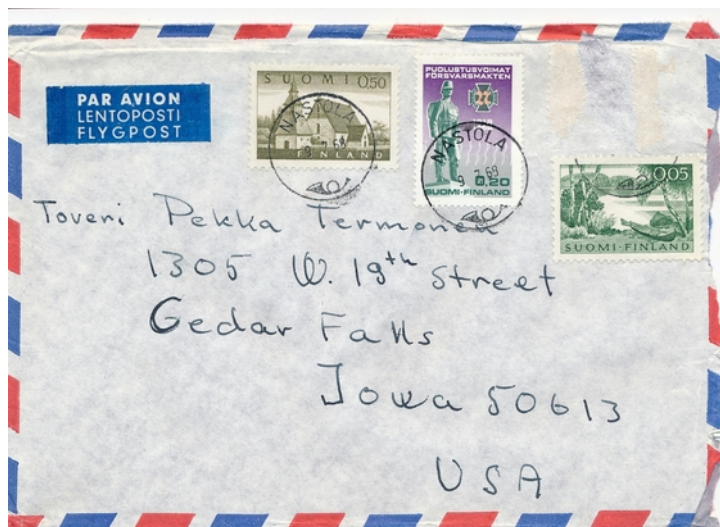 PAR AVION
LENTOPOSTI
FLYGPOST
SUOMI 0,50
FINLAND
NASTOLA
9.7.68
PUOLUSTUSVOIMAT
FÖRSVARSMAKTEN
NASTOLA
9.7.68
0,20
SUOMI-FINLAND
0,05
SUOMI-FINLAND
Toveri Pekka Termonen
1305 W. 19th Street
Cedar Falls
Iowa 50613
USA